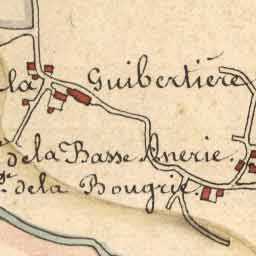 la Guibertière
de la Basse Anerie.
de la Bougrie.